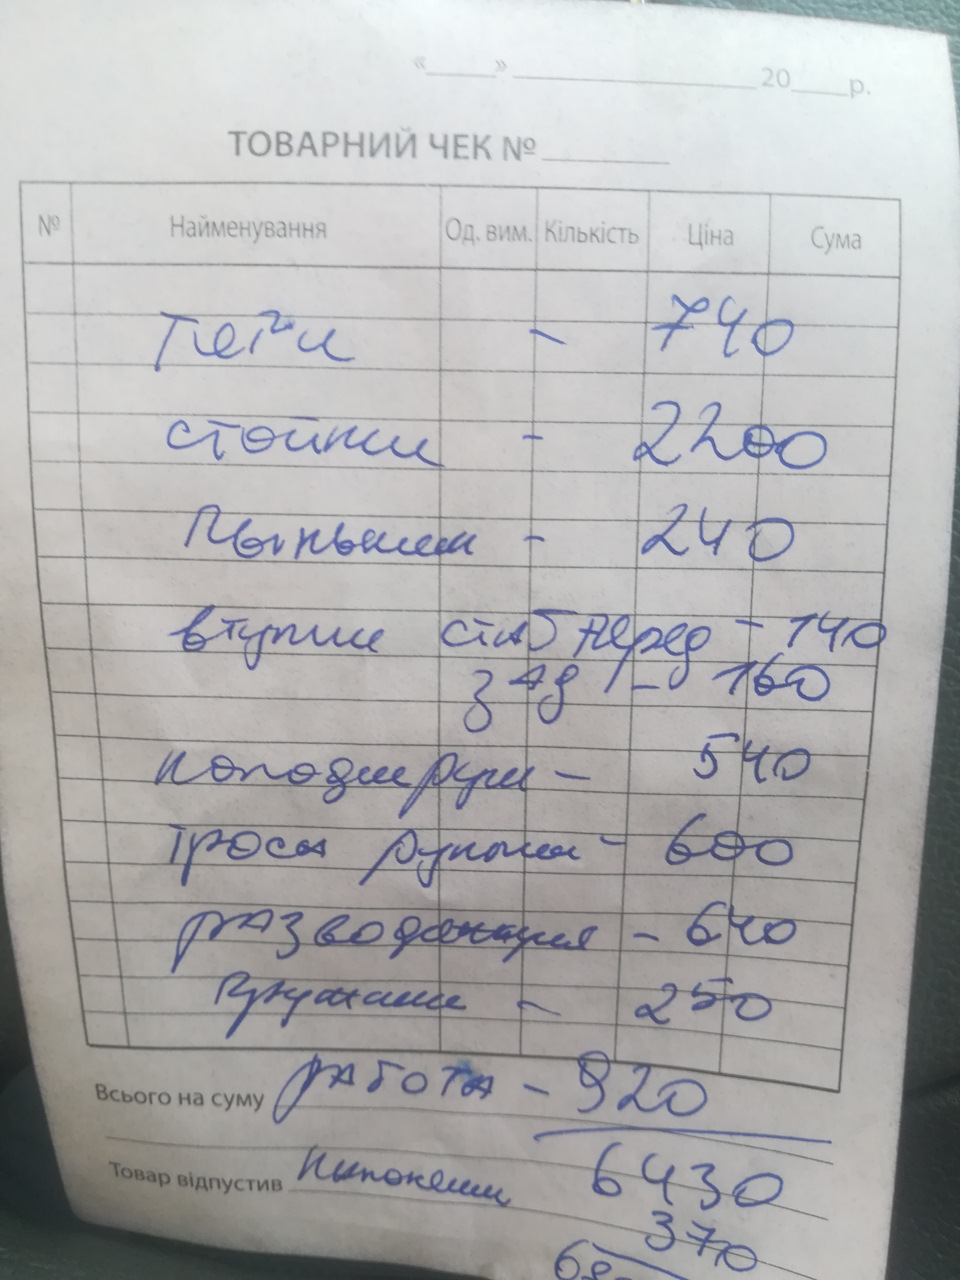 «____» ____________ 20____р.
ТОВАРНИЙ ЧЕК №________
№ Найменування Од. вим. Кількість Ціна Сума
тяги - 740
стойки - 2200
- 240
втулки стаб перед - 140
зад - 160
колодки руч - 540
троса ручника - 600
- 640
- 250
Всього на суму работа - 920
6430
Товар відпустив
370